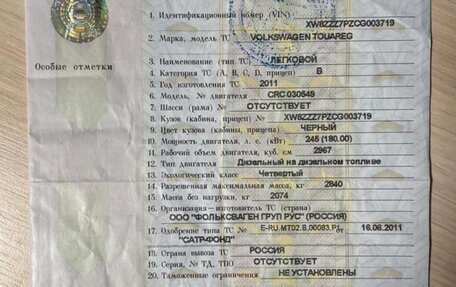 Особые отметки
1. Идентификационный номер (VIN) XW8ZZZ7PZCG003719
2. Марка, модель ТС VOLKSWAGEN TOUAREG
3. Наименование (тип ТС) ЛЕГКОВОЙ
4. Категория ТС (A, B, C, D, прицеп) B
5. Год изготовления ТС 2011
6. Модель, № двигателя CRC 030549
7. Шасси (рама) № ОТСУТСТВУЕТ
8. Кузов (кабина, прицеп) № XW8ZZZ7PZCG003719
9. Цвет кузова (кабины, прицепа) ЧЕРНЫЙ
10. Мощность двигателя, л. с. (кВт) 245 (180.00)
11. Рабочий объем двигателя, куб. см 2967
12. Тип двигателя Дизельный на дизельном топливе
13. Экологический класс Четвертый
14. Разрешенная максимальная масса, кг 2840
15. Масса без нагрузки, кг 2074
16. Организация—изготовитель ТС (страна)
ООО "ФОЛЬКСВАГЕН ГРУП РУС" (РОССИЯ)
17. Одобрение типа ТС № E-RU.MT02.B.00083.P от 16.06.2011
"САТР-ФОНД"
18. Страна вывоза ТС РОССИЯ
19. Серия, № ТД, ТПО ОТСУТСТВУЕТ
20. Таможенные ограничения НЕ УСТАНОВЛЕНЫ